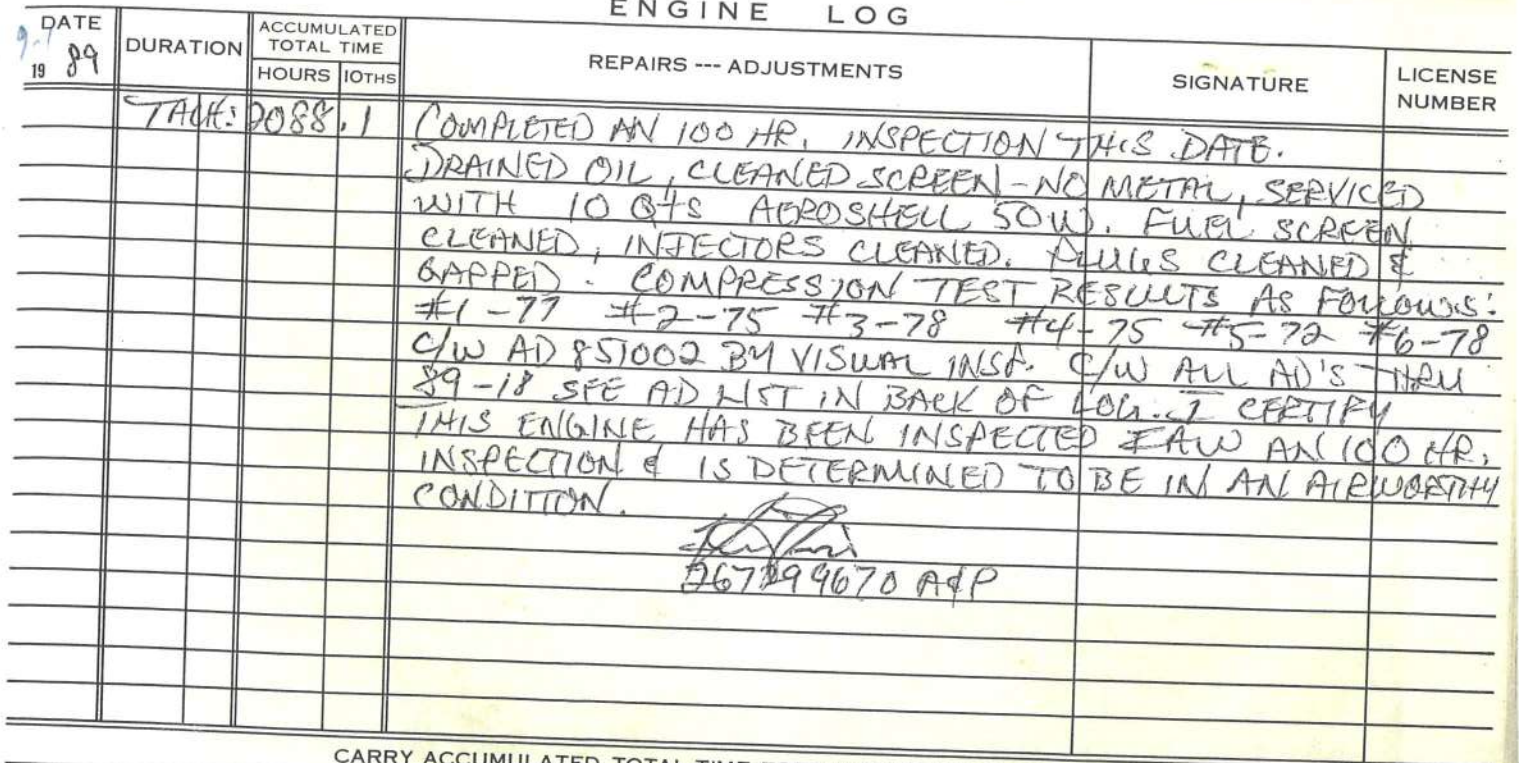 ENGINE LOG
DATE
9-7
19 89
DURATION
ACCUMULATED TOTAL TIME
HOURS 10THS
REPAIRS --- ADJUSTMENTS
SIGNATURE
LICENSE NUMBER
TACH: 2088.1 COMPLETED AN 100 HR. INSPECTION THIS DATE.
DRAINED OIL, CLEANED SCREEN - NO METAL, SERVICED
WITH 10 QTS AEROSHELL 50W. FUEL SCREEN
CLEANED, INJECTORS CLEANED. PLUGS CLEANED &
GAPPED. COMPRESSION TEST RESULTS AS FOLLOWS:
#1-77 #2-75 #3-78 #4-75 #5-72 #6-78
C/W AD 851002 BY VISUAL INSP. C/W ALL AD'S THRU
89-18 SEE AD LIST IN BACK OF LOG. I CERTIFY
THIS ENGINE HAS BEEN INSPECTED IAW AN 100 HR.
INSPECTION & IS DETERMINED TO BE IN AN AIRWORTHY
CONDITION.
A&P
CARRY ACCUMULATED TOTAL TIME